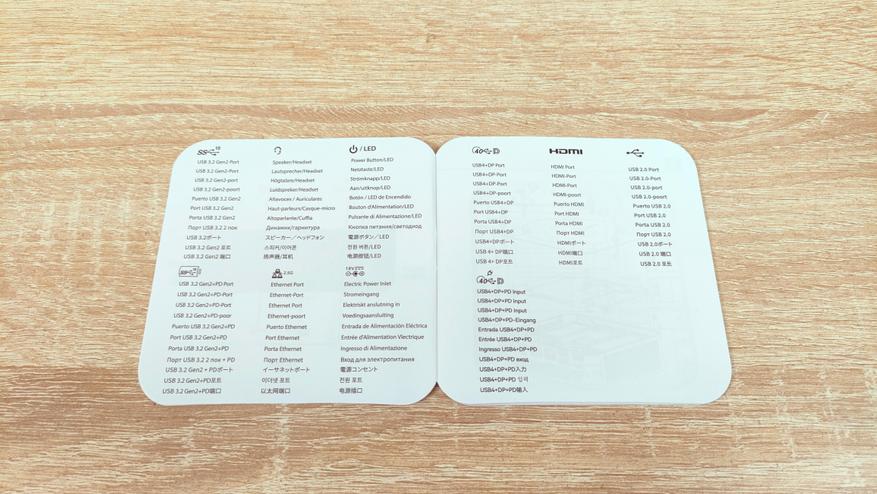 SS 10
USB 3.2 Gen2-Port
USB 3.2 Gen2-Port
USB 3.2 Gen2-port
USB 3.2 Gen2-poort
Puerto USB 3.2 Gen2
Port USB 3.2 Gen2
Porta USB 3.2 Gen2
Порт USB 3.2 2 пок
USB 3.2ポート
USB 3.2 Gen2 포트
USB 3.2 Gen2 端口
Speaker/Headset
Lautsprecher/Headset
Högtalare/Headset
Luidspreker/Headset
Altavoces / Auriculares
Haut-parleurs/Casque-micro
Altoparlante/Cuffia
Динамики/гарнитура
スピーカー／ヘッドフォン
스피커/이어폰
扬声器/耳机
/ LED
Power Button/LED
Netztaste/LED
Strömknapp/LED
Aan/uitknop/LED
Botón / LED de Encendido
Bouton d'Alimentation/LED
Pulsante di Alimentazione/LED
Кнопка питания/светодиод
電源ボタン／LED
전원 버튼/LED
电源按钮/LED
USB 3.2 Gen2+PD-Port
USB 3.2 Gen2+PD-Port
USB 3.2 Gen2+PD-Port
USB 3.2 Gen2+PD-poor
Puerto USB 3.2 Gen2+PD
Port USB 3.2 Gen2+PD
Porta USB 3.2 Gen2+PD
Порт USB 3.2 2 пок + PD
USB 3.2 Gen2 + PDポート
USB 3.2 Gen2+PD포트
USB 3.2 Gen2+PD端口
2.5G
Ethernet Port
Ethernet-Port
Ethernet-Port
Ethernet-poort
Puerto Ethernet
Port Ethernet
Porta Ethernet
Порт Ethernet
イーサネットポート
이더넷 포트
以太网端口
19V
Electric Power Inlet
Stromeingang
Elektriskt anslutning in
Voedingsaansluiting
Entrada de Alimentación Eléctrica
Entrée d'Alimentation Vlectrique
Ingresso di Alimentazione
Вход для электропитания
電源コンセント
전원 포트
电源插口
40 D
USB4+DP Port
USB4+DP-Port
USB4+DP-Port
USB4+DP-poort
Puerto USB4+DP
Port USB4+DP
Porta USB4+DP
Порт USB4+DP
USB4+DPポート
USB 4+ DP端口
USB 4+ DP포트
HDMI
HDMI Port
HDMI-Port
HDMI-Port
HDMI-poort
Puerto HDMI
Port HDMI
Porta HDMI
Порт HDMI
HDMIポート
HDMI端口
HDMI포트
USB 2.0 Port
USB 2.0-Port
USB 2.0-port
USB 2.0-poort
Puerto USB 2.0
Port USB 2.0
Porta USB 2.0
Порт USB 2.0
USB 2.0ポート
USB 2.0 端口
USB 2.0 포트
40 D
USB4+DP+PD Input
USB4+DP+PD Input
USB4+DP+PD Input
USB4+DP+PD-Eingang
Entrada USB4+DP+PD
Entrée USB4+DP+PD
Ingresso USB4+DP+PD
USB4+DP+PD вход
USB4+DP+PD入力
USB4+DP+PD 입력
USB4+DP+PD输入